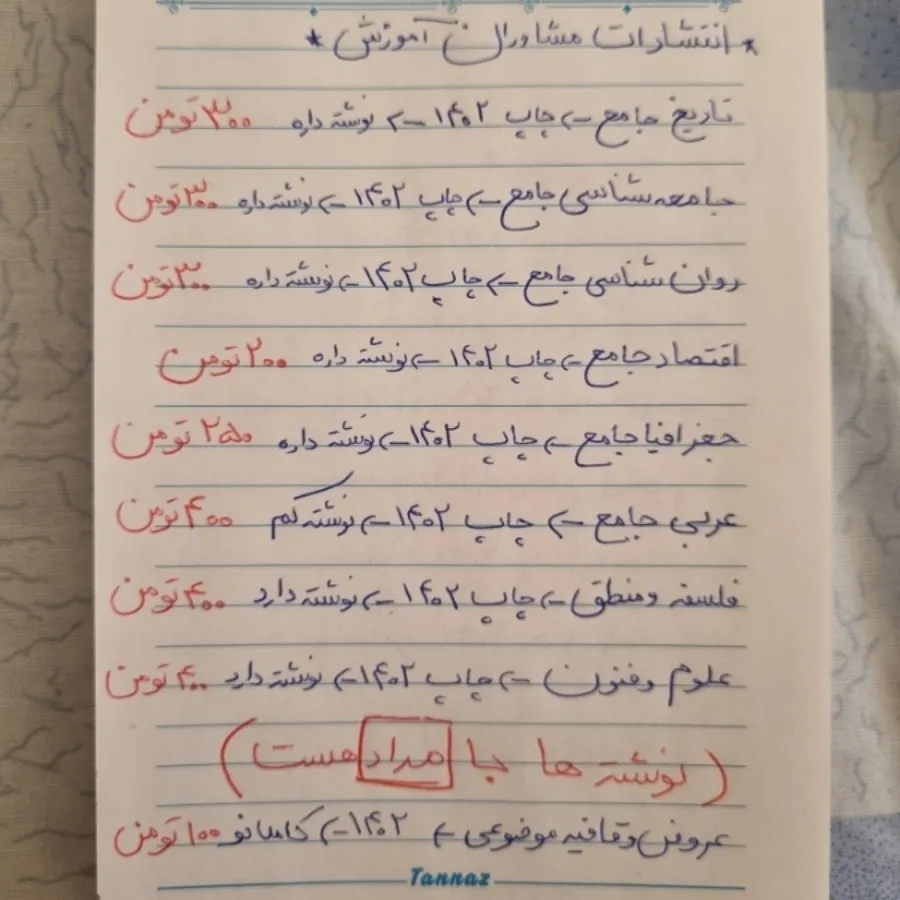 * انتشارات مشاوران آموزش *
تاریخ جامع ← چاپ ۱۴۰۲ ← نوشته داره ۳۰۰ تومن
جامعه شناسی جامع ← چاپ ۱۴۰۲ ← نوشته داره ۳۰۰ تومن
روان شناسی جامع ← چاپ ۱۴۰۲ ← نوشته داره ۳۰۰ تومن
اقتصاد جامع ← چاپ ۱۴۰۲ ← نوشته داره ۲۰۰ تومن
جغرافیا جامع ← چاپ ۱۴۰۲ ← نوشته داره ۲۵۰ تومن
عربی جامع ← چاپ ۱۴۰۲ ← نوشته کم ۴۰۰ تومن
فلسفه و منطق ← چاپ ۱۴۰۲ ← نوشته دارد ۴۰۰ تومن
علوم و فنون ← چاپ ۱۴۰۲ ← نوشته دارد ۴۰۰ تومن
(نوشته ها با مداد هست)
عروض و قافیه موضوعی ← ۱۴۰۲ ← کاملا نو ۱۰۰ تومن
Tannaz